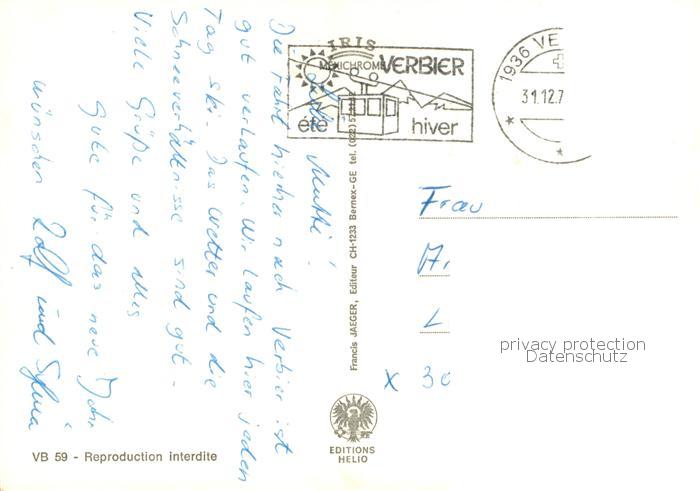 IRIS
MEXICHROME
VERBIER
été hiver
1936 VE
31.12.7
Mutti!
Die Fahrt hierher nach Verbier ist
gut verlaufen. Wir laufen hier jeden
Tag Ski. Das Wetter und die
Schneeverhältnisse sind gut.
Viele Grüße und alles
Gute für das neue Jahr
wünschen Rolf und Sylvia
Francis JAEGER, Editeur CH-1233 Bernex-GE tel. (022)
Frau
A.
L
x 30
privacy protection
Datenschutz
EDITIONS
HELIO
VB 59 - Reproduction interdite